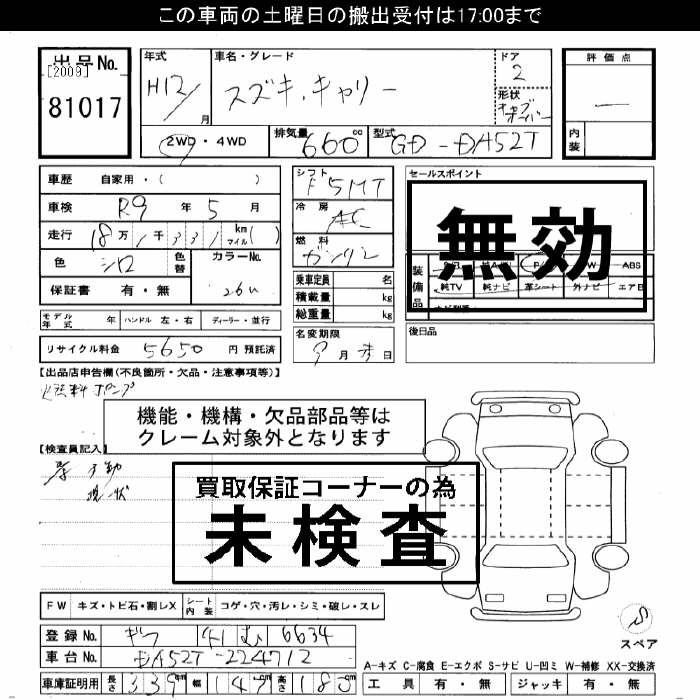 この車両の土曜日の搬出受付は17:00まで
出品No.
[2009]
81017
年式
H12/
月
車名・グレード
スズキ.キャリー
ドア
2
形状
評価点
—
内装
2WD・4WD
排気量
660
cc
型式
GD-DA52T
車歴 自家用・( )
車検 R9 年 5 月
走行 18万1千331 km マイル( )
色 シロ 色替
カラーNo.
26U
保証書 有・無
シフト
F5MT
冷房
AC
燃料
ガソリン
乗車定員 名
積載量 kg
総重量 kg
セールスポイント
無効
装備品
ABS
純TV 純ナビ 革シート 外ナビ エアB
モデル年式 年 ハンドル 左・右 ディーラー・並行
リサイクル料金 5650 円 預託済
名変期限
月 日
後日品
【出品店申告欄(不良箇所・欠品・注意事項等)】
機能・機構・欠品部品等は
クレーム対象外となります
【検査員記入】
現状
買取保証コーナーの為
未検査
FW キズ・トビ石・割レX
シート内装 コゲ・穴・汚レ・シミ・破レ・スレ
登録No. ギフ 41 む 6634
車台No. DA52T-224712
車庫証明用 長さ 339cm 幅 147cm 高さ 180cm
スペア
A-キズ C-腐食 E-エクボ S-サビ U-凹ミ W-補修 XX-交換済
工具 有・無 ジャッキ 有・無